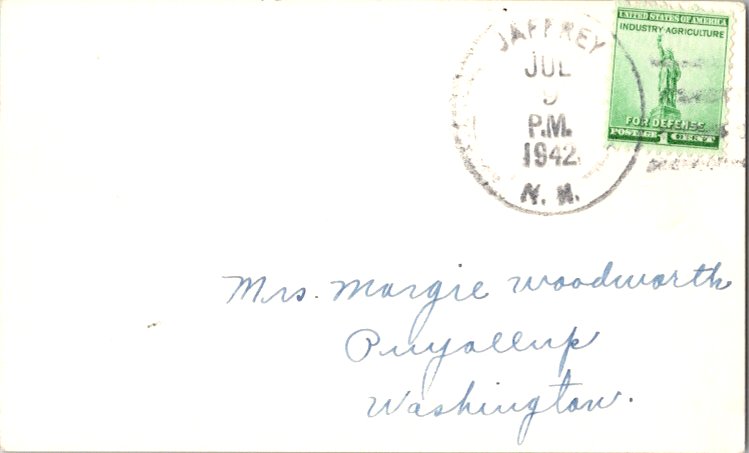 JAFFREY
JUL
9
P.M.
1942
N. H.
UNITED STATES OF AMERICA
INDUSTRY AGRICULTURE
FOR DEFENSE
POSTAGE 1 CENT
Mrs. Margie Woodworth
Puyallup
Washington.